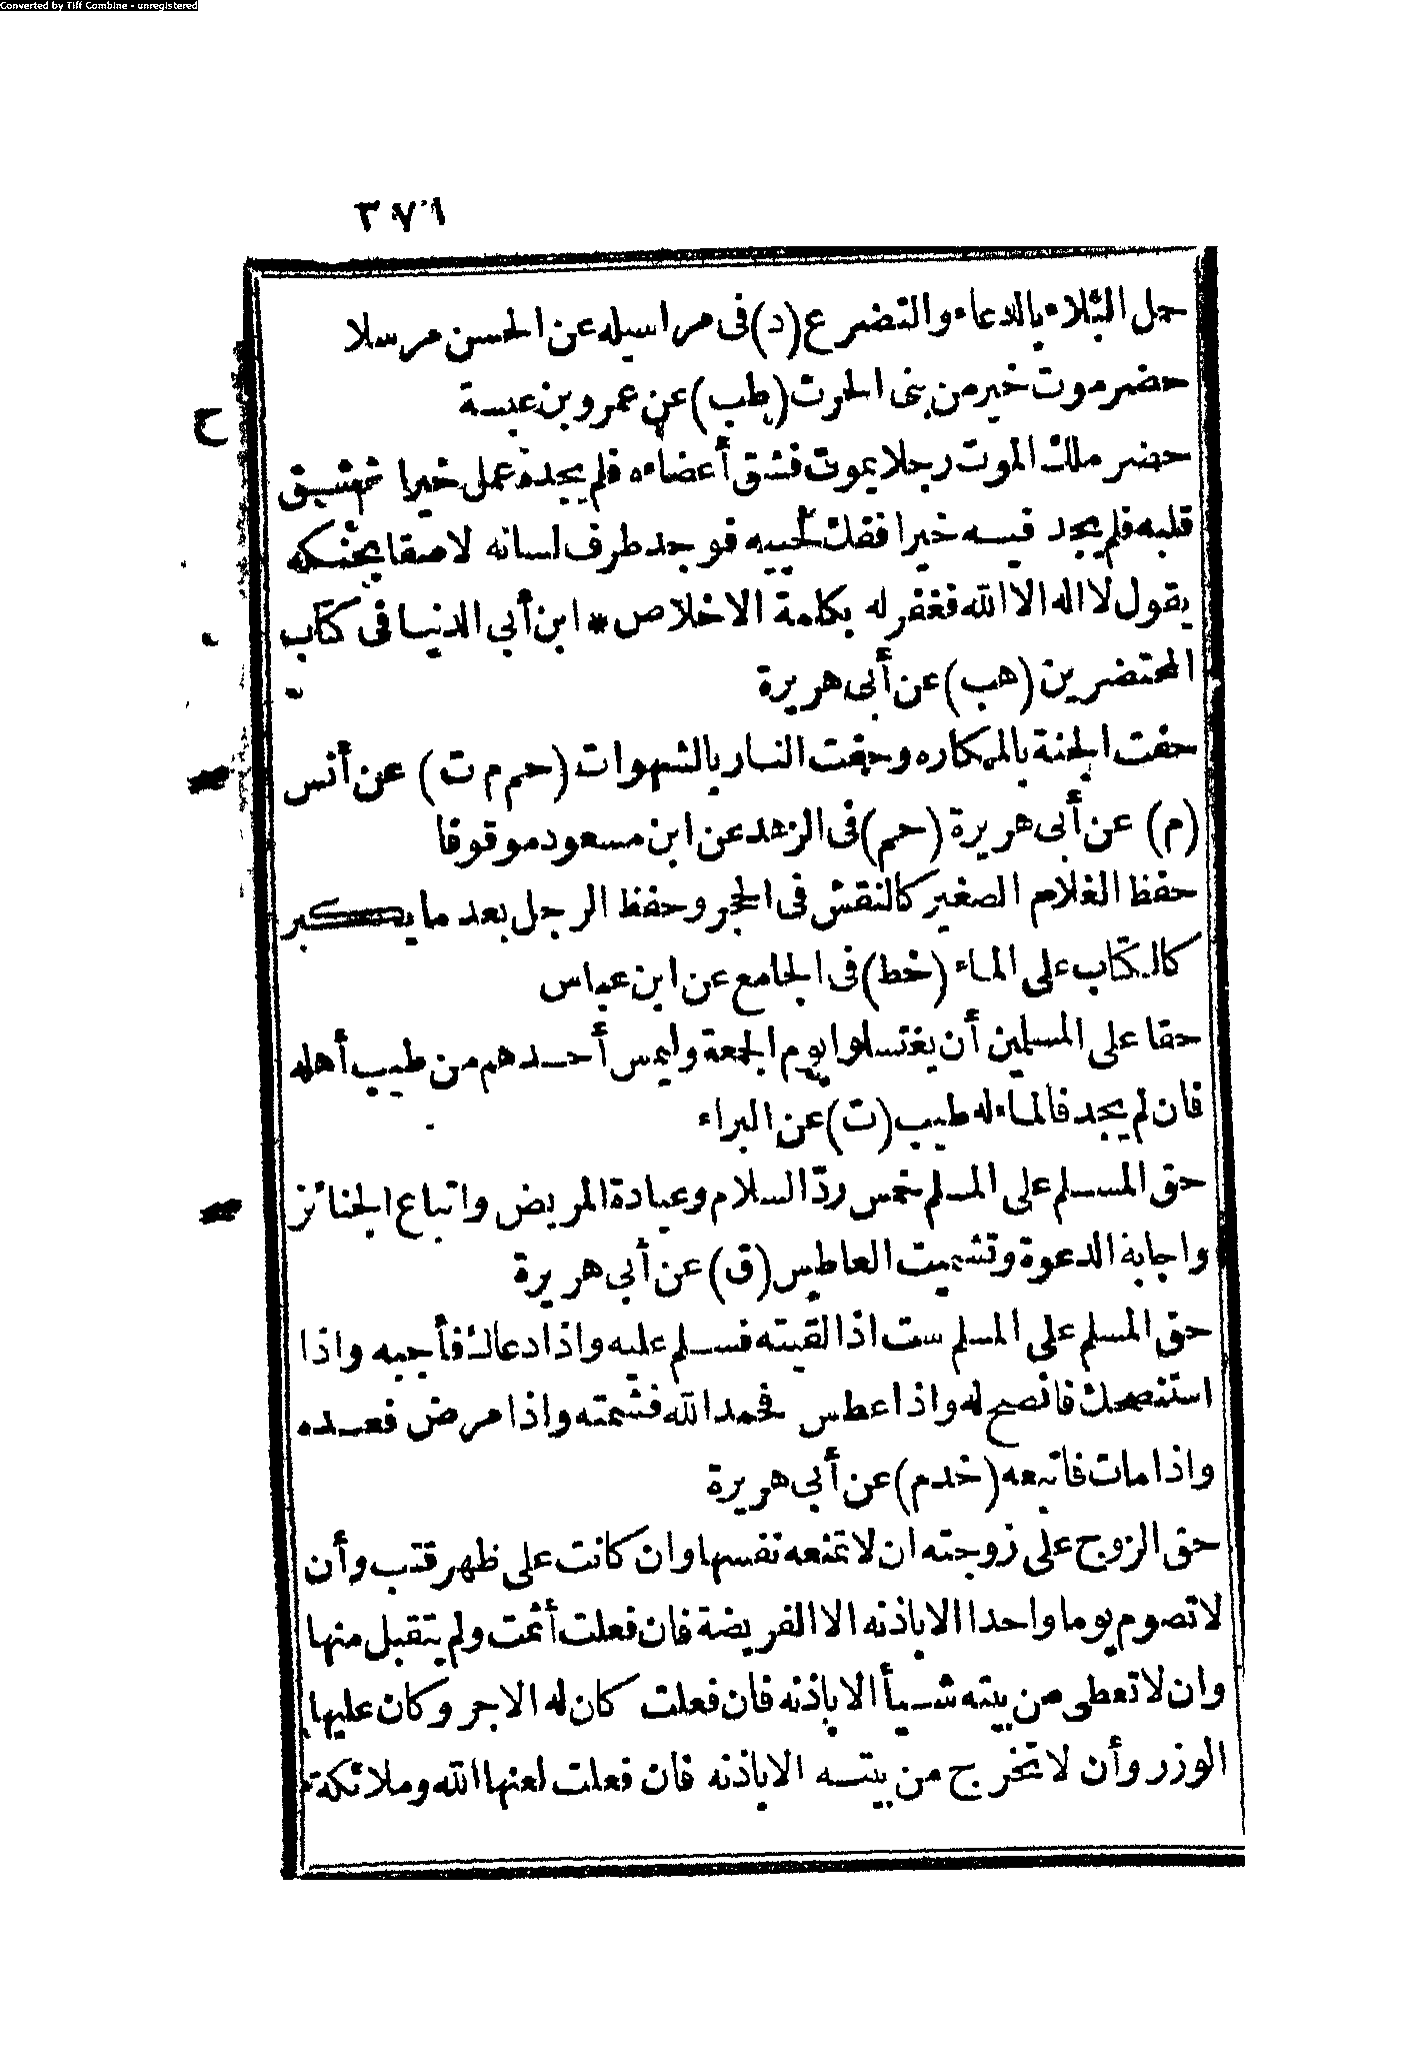 Converted by Tiff Combine - unregistered
٣٧٦
حمل البلاء بالدعاء والتضرع (د) فى مراسيله عن الحسن مرسلا
حضرموت خير من بنى الحرث (طب) عن عمرو بن عبسة
ح
حضر ملك الموت رجلا يموت فشق أعضاءه فلم يجده عمل خيرا ثم شق
قلبه فلم يجد فيه خيرا ففك لحييه فوجد طرف لسانه لاصقا بحنكه
يقول لا اله الا الله فغفر له بكلمة الاخلاص * ابن أبى الدنيا فى كتاب
المحتضرين (هب) عن أبى هريرة
حفت الجنة بالمكاره وحفت النار بالشهوات (حم م ت) عن أنس
(م) عن أبى هريرة (حم) فى الزهد عن ابن مسعود موقوفا
حفظ الغلام الصغير كالنقش فى الحجر وحفظ الرجل بعد ما يكبر
كالكتاب على الماء (خط) فى الجامع عن ابن عباس
حقا على المسلمين أن يغتسلوا يوم الجمعة وليمس أحدهم من طيب أهله
فان لم يجد فالماء له طيب (ت) عن البراء
حق المسلم على المسلم خمس ردّ السلام وعيادة المريض واتباع الجنائز
واجابة الدعوة وتشميت العاطس (ق) عن أبى هريرة
حق المسلم على المسلم ست اذا لقيته فسلم عليه واذا دعاك فأجبه واذا
استنصحك فانصح له واذا عطس فحمد الله فشمته واذا مرض فعده
واذا مات فاتبعه (خدم) عن أبى هريرة
حق الزوج على زوجته ان لا تمنعه نفسها وان كانت على ظهر قتب وأن
لا تصوم يوما واحدا الا باذنه الا الفريضة فان فعلت أثمت ولم يتقبل منها
وان لا تعطى من بيته شيأ الا باذنه فان فعلت كان له الاجر وكان عليها
الوزر وأن لا تخرج من بيته الا باذنه فان فعلت لعنها الله وملائكة